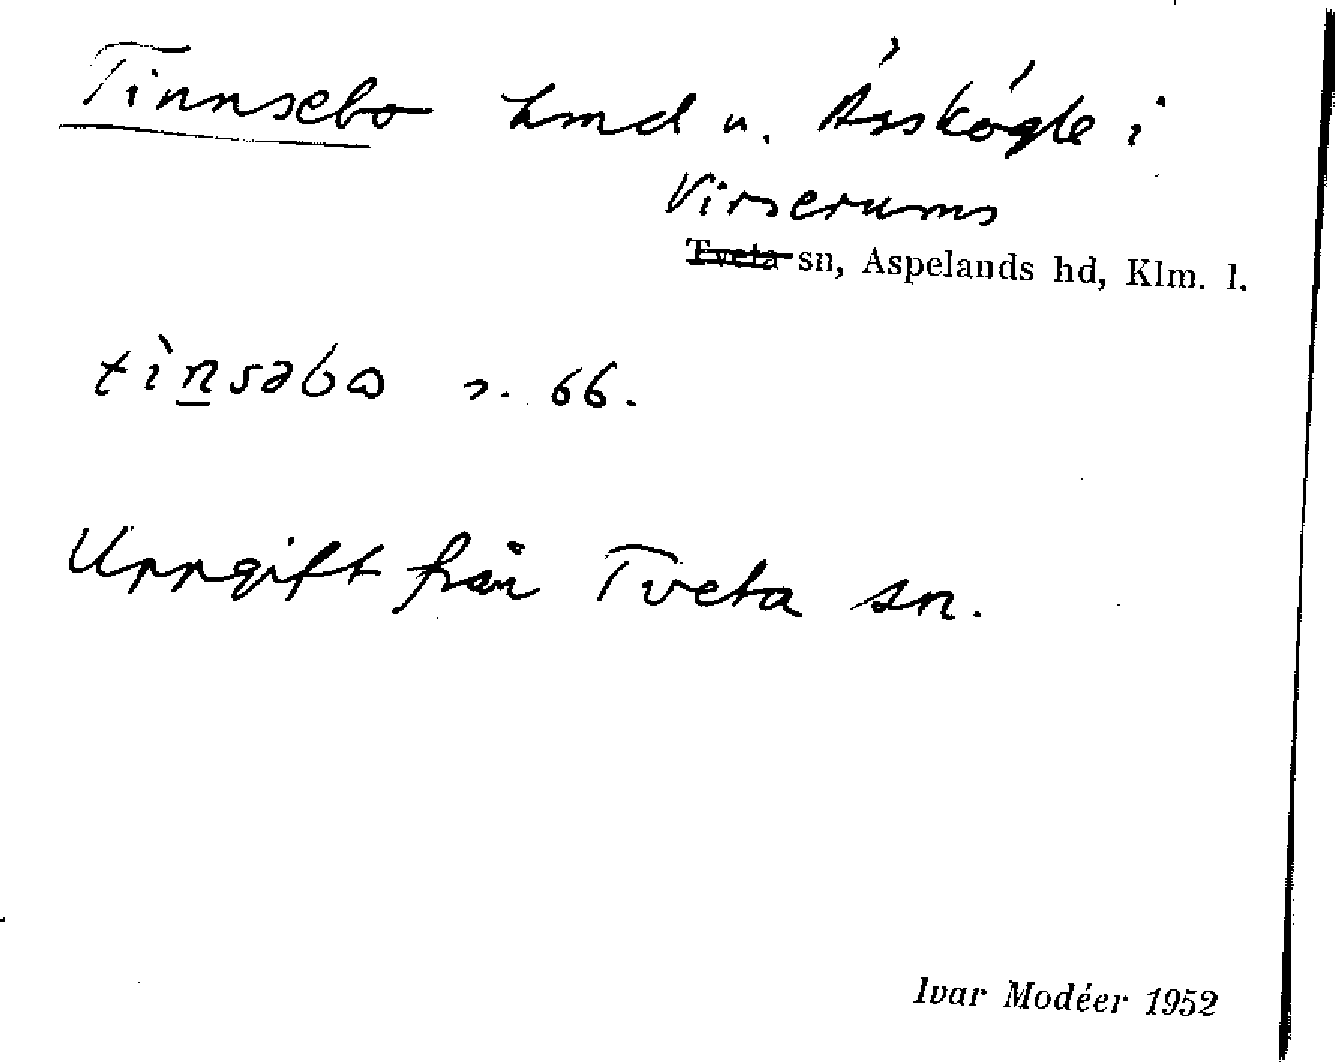 Tinnsebo hmd u. Åsskögle i
Virserums
Tveta sn, Aspelands hd, Klm. l.
tìnsəbo s. 66.
Uppgift från Tveta sn.
Ivar Modéer 1952